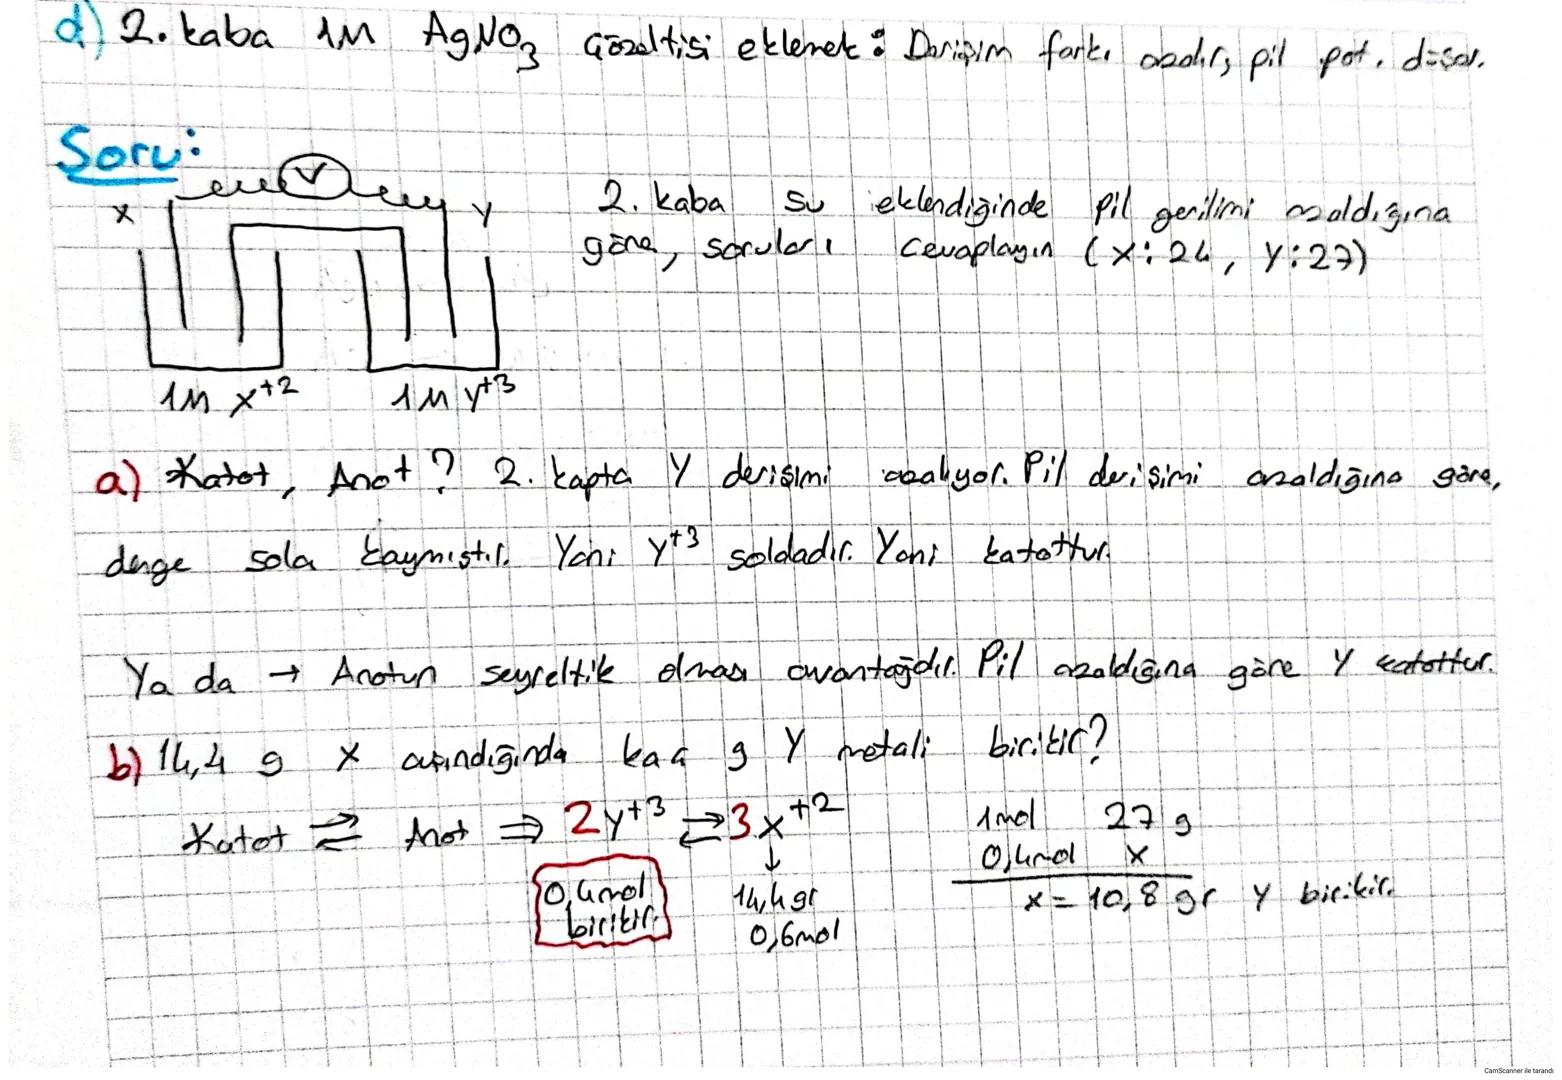 d) 2. kaba 1M AgNO3 çözeltisi eklemek: Derişim farkı azalır, pil pot. düşer.
Soru:
V
X Y
2. kaba su eklendiğinde pil gerilimi azaldığına
göre, soruları cevaplayın (X: 24, Y: 27)
1M X+2 1M Y+3
a) Katot, Anot? 2. kapta Y derişimi azalıyor. Pil derişimi azaldığına göre,
denge sola kaymıştır. Yani Y+3 soldadır. Yani katottur.
Ya da → Anotun seyreltik olması avantajdır. Pil azaldığına göre Y katottur.
b) 14,4 g X aşındığında kaç g Y metali birikir?
Katot ⇌ Anot ⇒ 2Y+3 ⇌ 3X+2
↓
0,4mol birikir.
14,4 gr
0,6mol
1mol 27 g
0,4mol x
x = 10,8 gr Y birikir.
CamScanner ile tarandı